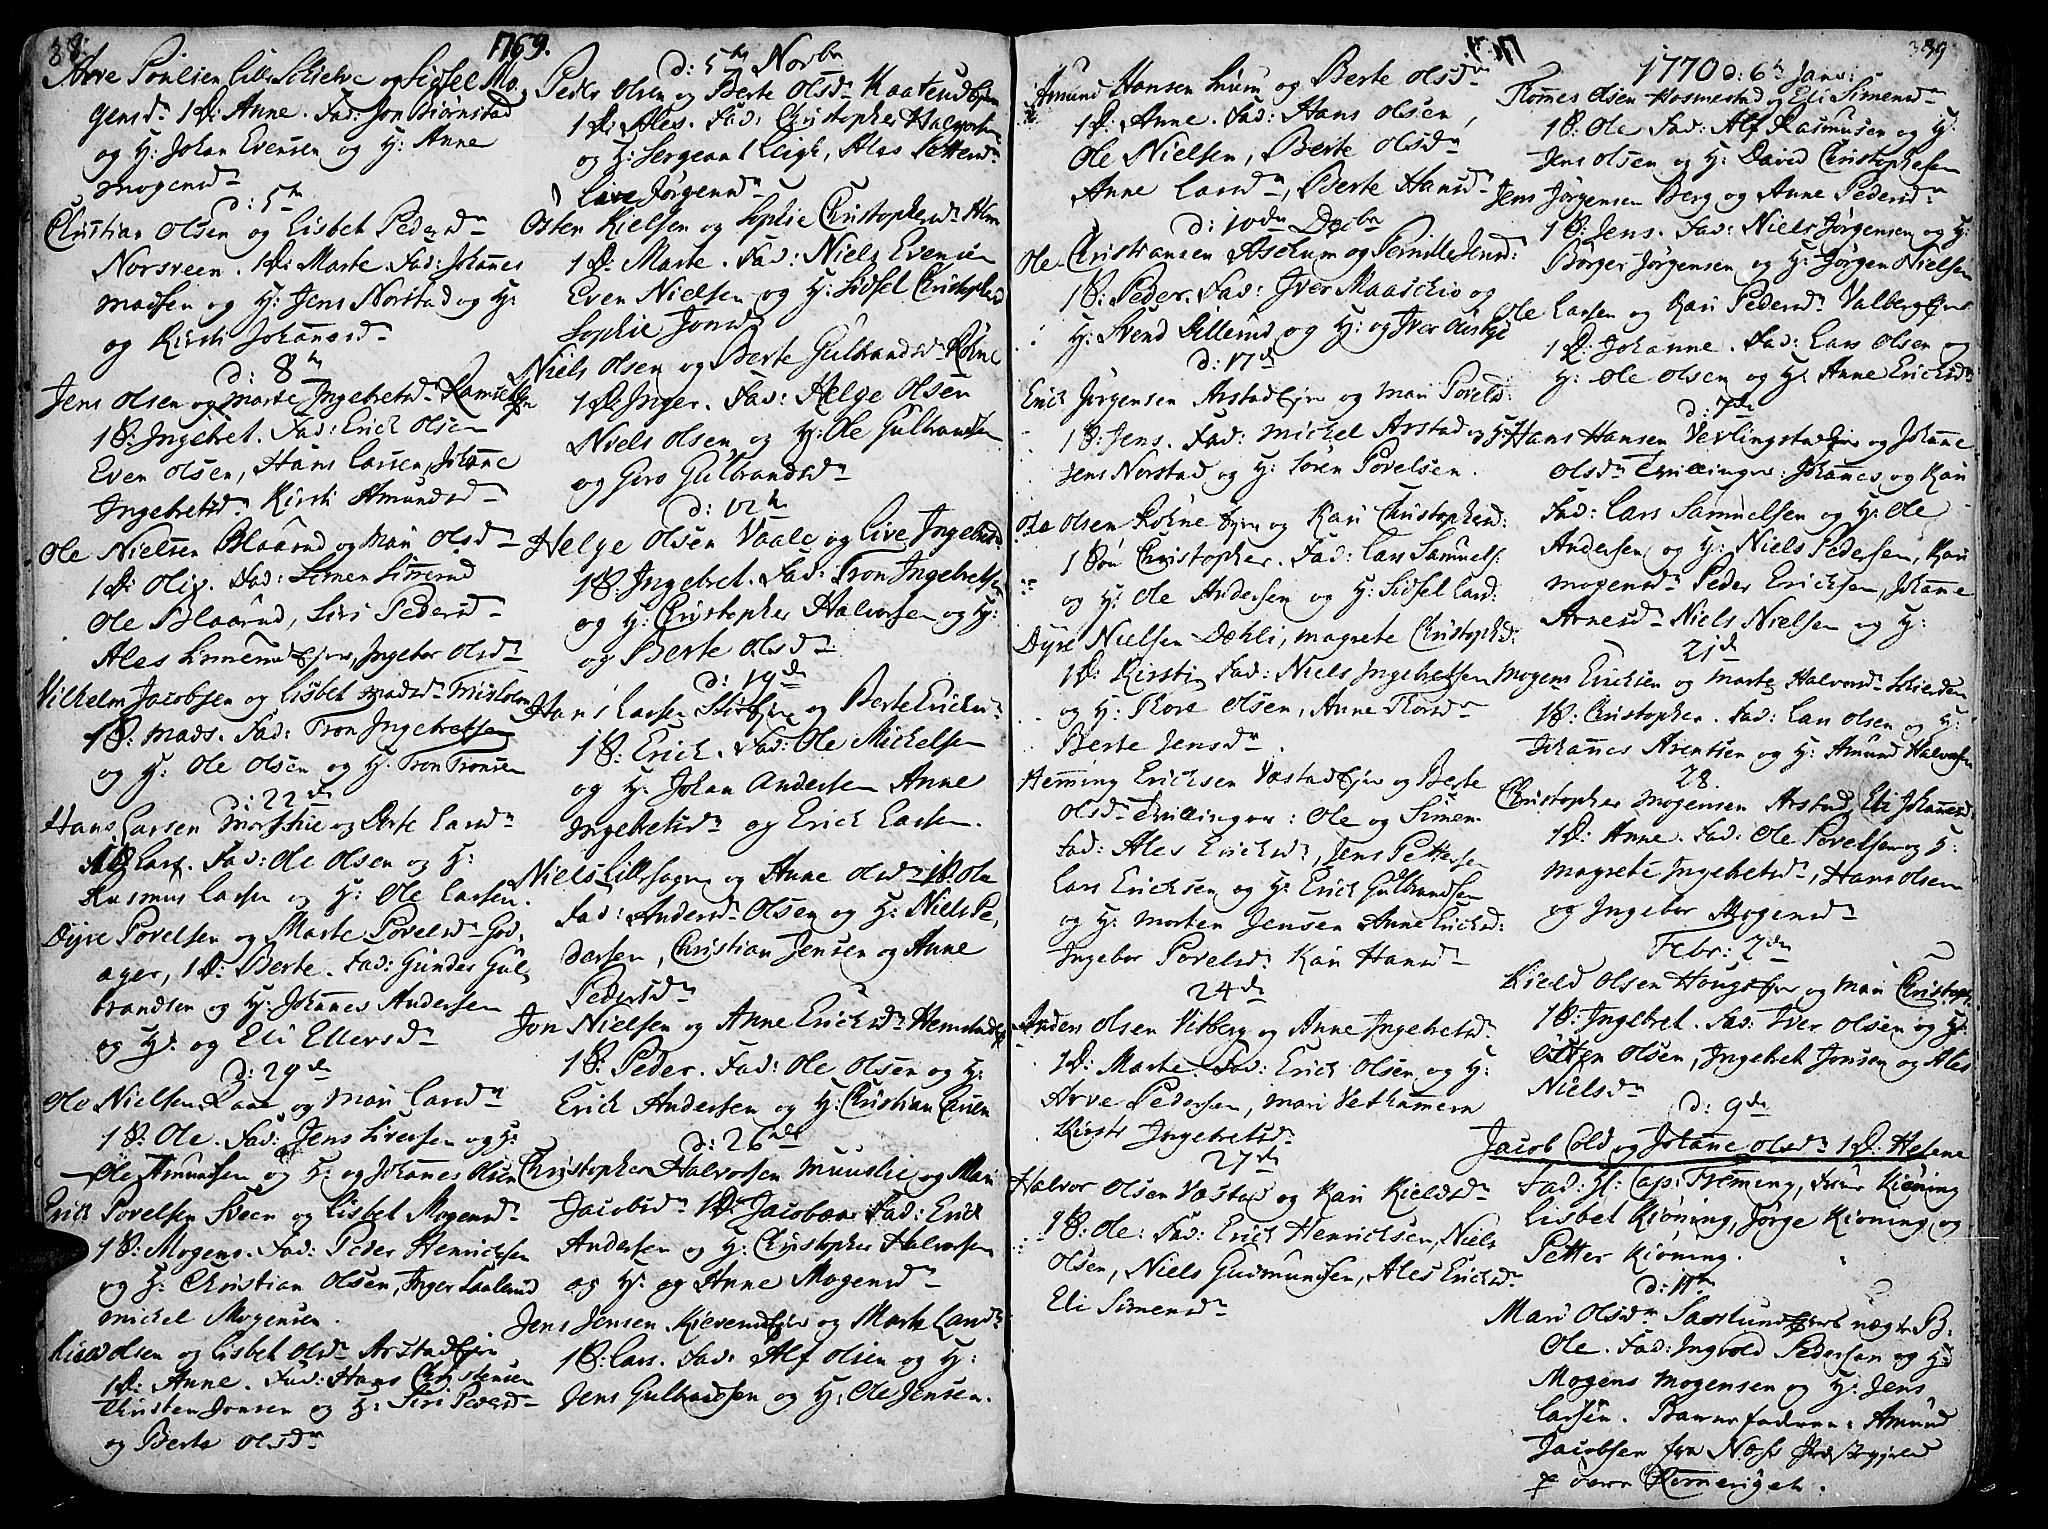 38
1769.
Arve Poulsen Lille Schielve og Sidsel Mo,
gensdn 1D: Anne. Fad: Jon Biørnstad
og H: Johan Evensen og H: Anne
Mogensdn
d: 5te
Christian Olsen og Lisbet Pedersdn
Norsveen. 1D: Marte. Fad: Johannes
Madsen og H: Jens Norstad og H:
og Kirsti Johannsdn
d: 8te
Jens Olsen og Marte Ingebretsdn
1S: Ingebret. Fad: Erick Olsen
Even Olsen, Hans Larsen, Johanne
Ingebretsdn Kirsti Amundsdn
Ole Nielsen Blaarud og Mari Olsdn
1D: Oliv. Fad: Simen Simerud
Ole Blaarud, Siri Pedersdn
Ales Simerud Ejer, Ingebor Olsdn
Vilhelm Jacobsen og Lisbet Madsdn
1S: Mads. Fad: Tron Ingebretsen
og H: Ole Olsen og H: Tron Tronsen
d: 22de
Hans Larsen og Berte Larsdn
1S: Lars. Fad: Ole Olsen og H:
Rasmus Larsen og H: Ole Larsen.
Dyre Povelsen og Marte Povelsdn God,
ager, 1D: Berte. Fad: Gunder Gul,
brandsen og H: Johannes Andersen
og H: og Eli Ellersdn
d: 29de
Ole Nielsen og Mari Larsdn
1S: Ole. Fad: Jens Iversen og H:
Ole Amundsen og H: og Johannes Olsen
Erick Povelsen Sveen og Lisbet Mogensdn
1S: Mogens. Fad: Peder Henricksen
og H: Christian Olsen, Inger
Michel Mogensen.
Kield Olsen og Lisbet Olsdn Arstad Ejer
1D: Anne. Fad: Hans Christensen
Christen Jonsen og H: Siri Pedersdn
og Berte Olsdn
d: 5te Novbr
Peder Olsen og Berte Olsdn
1D: Ales. Fad: Christopher Halvorsen
og H: Sergeant Leigh, Ales Pettersdn
Live Jørgensdn
Osten Kielsen og Sophie Christophersdn
1D: Marte. Fad: Niels Evensen
Even Nielsen og H: Sidsel Christophersd
Sophie Jonsdn
Niels Olsen og Berte Gulbrandsdn Røhne
1D: Inger. Fad: Helge Olsen
Niels Olsen og H: Ole Gulbrandsen
og Gero Gulbrandsdn
d: 12te
Helge Olsen Vaale og Live Ingebretsdn
1S: Ingebret. Fad: Tron Ingebretsen
og H: Christopher Halvorsen og H:
og Berte Olsdn
d: 19de
Hans Larsen og Berte Ericksdn
1S: Erick. Fad: Ole Michelsen
og H: Johan Andersen Anne
Ingebretsdn og Erick Larsen.
Niels Lillesagen og Anne Olsdn 1S: Ole
Fad: Andersdn Olsen og H: Niels Pe,
dersen, Christian Jensen og Anne
Pedersdn
Jon Nielsen og Anne Ericksdn Hemstad
1S: Peder. Fad: Ole Olsen og H:
Erick Andersen og H: Christian Larsen
d: 26nde
Christopher Halvorsen Muuslie og Mari
Jacobsdn 1D: Jacobaa Fad: Erick
Andersen og H: Christopher Halvorsen
og H: og Anne Mogensdn
Jens Jensen Kieverud Ejer og Marte Larsdn
1S: Lars. Fad: Alf Olsen og H:
Jens Gulbrandsen og H: Ole Jensen.
389
Amund Hansen og Berte Olsdn
1D: Anne. Fad: Hans Olsen,
Ole Nielsen, Berte Olsdn
Anne Larsdn, Berte Hansdn
d: 10de Decbr
Ole Christiansen Aschum og Pernille Jensd:
1S: Peder. Fad: Iver og
H: Svend Dillerud og H: og Iver
d: 17de
Erick Jørgensen Arstad Ejer og Mari Povelsd:
1S: Jens. Fad: Michel Arstad og H:
Jens Norstad og H: Søren Povelsen.
Ole Olsen Røhne Ejer og Kari Christophersd:
1 Søn Christopher. Fad: Lars Samuels:
og H: Ole Andersen og H: Sidsel Larsd:
Dyre Nielsen Dæhli, Magrete Christophd:
1D: Kirsti Fad: Niels Ingebretsen
og H: Thore Olsen, Anne Thorsdn
Berte Jensdn.
Hemming Ericksen Vastad Ejer og Berte
Olsdn Tvillinger: Ole og Simen.
Fad: Ales Ericksdn, Jens Pettersen
Lars Ericksen og H: Erick Gulbrandsen
og H: Morten Jensen Anne Ericksd:
Ingebor Povelsdn Kari Hansdn
24de
Anders Olsen Vitberg og Anne Ingebretsdn
1D: Marte. Fad: Erick Olsen og H:
Arve Pedersen, Mari Vethammern
Kirsti Ingebretsdn
27de
Halvor Olsen Vastad og Kari Kieldsdn
1S: Ole: Fad: Erick Henricksen, Niels
Olsen, Niels Gudmundsen, Ales Ericksdn
Eli Simensdn
1770 d: 6te Janv:
Thomes Olsen Hosmestad og Eli Simensdn
1S: Ole Fad: Alf Rasmusen og H:
Jens Olsen og H: David Christophersen
Jens Jørgensen Berg og Anne Pedersdn
1S: Jens. Fad: Niels Jørgensen og H:
Børger Jørgensen og H: Jørgen Nielsen
Ole Larsen og Kari Pedersdn Valberg Ejer
1D: Johanne. Fad: Lars Olsen og
H: Ole Olsen og H: Anne Ericksdn
d: 7de
Hans Hansen Vevlingstad Ejer og Johanne
Olsdn Tvillinger: Johannes og Kari
Fad: Lars Samuelsen og H: Ole
Andersen og H: Niels Pedersen, Kari
Mogensdn Peder Ericksen, Johanne
Arnesdn Niels Nielsen og H:
21de
Mogens Ericksen og Marte Halvorsdn
1S: Christopher. Fad: Lars Olsen og H:
Johannes Arentsen og H: Amund Halvorsen
28.
Christopher Mogensen Arstad, Eli Johannesd:
1D: Anne. Fad: Ole Povelsen og H:
Magrete Ingebretsdn, Hans Olsen
og Ingebor Mogensdn
Febr: 2den
Kield Olsen Hougs Ejer og Mari Christoph:
1S: Ingebret. Fad: Iver Olsen og H:
Olsen, Ingebret Jonsen og Ales
Nielsdn
d: 9de
Jacob Cold og Johanne Olsdn 1D: Helene
Fad: Hr: Cap: Flemming, Frue Kiøning
Lisbet Kiøning, Jørge Kiøning, og
Petter Kiøning.
d: 11te
Mari Olsdn Saxlund Ejer et uægte B.
Ole. Fad: Ingvold Pedersen og H:
Mogens Mogensen og H: Jens
Larsen. Barne faderen: Amund
Jacobsen fra Næss Præstegield
på øvere Rommeriget.